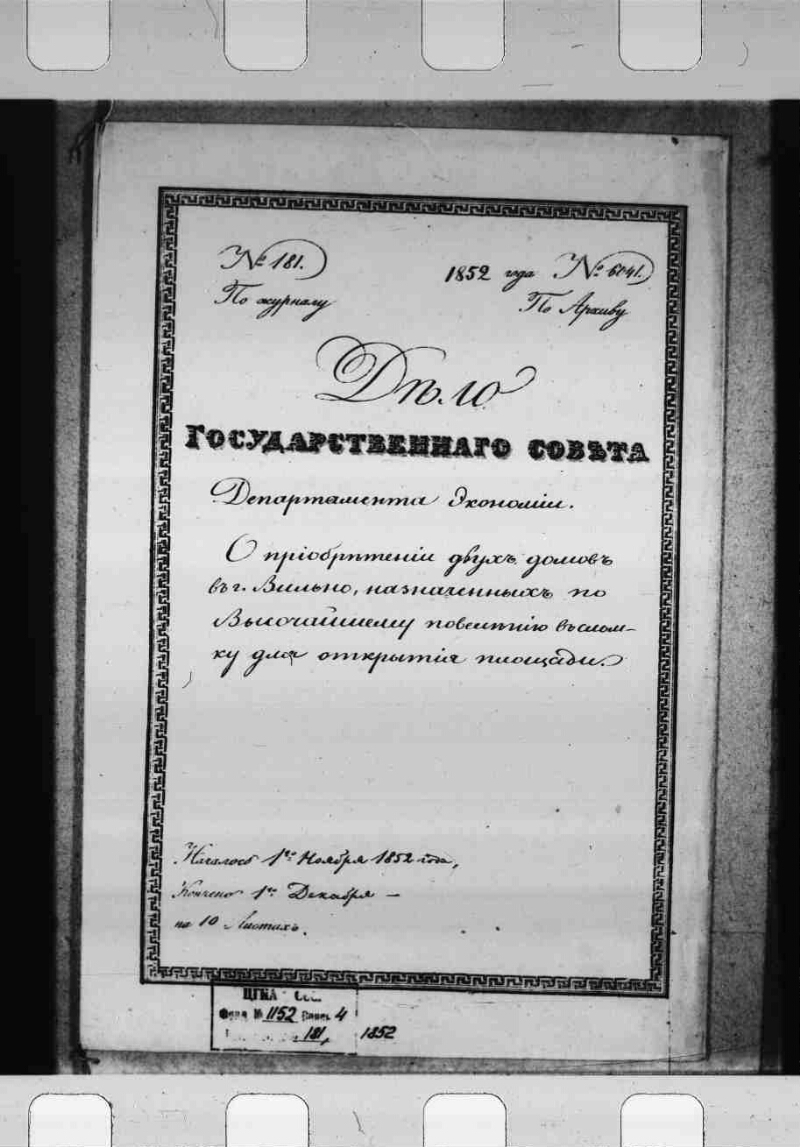 № 181.
По журналу
1852 года № 6041.
По Архиву
Дѣло
ГОСУДАРСТВЕННАГО СОВѢТА
Департамента Экономіи.
О пріобрѣтеніи двухъ домовъ
въ г. Вильно, назначенныхъ по
Высочайшему повелѣнію въ слом-
ку для открытія площади.
Началось 1го Ноября 1852 года,
Кончено 1го Декабря —
на 10 Листахъ.
ЦГИА СССР
Фонд № 1152 Опись 4
181, 1852